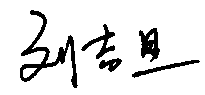 刘吉旦